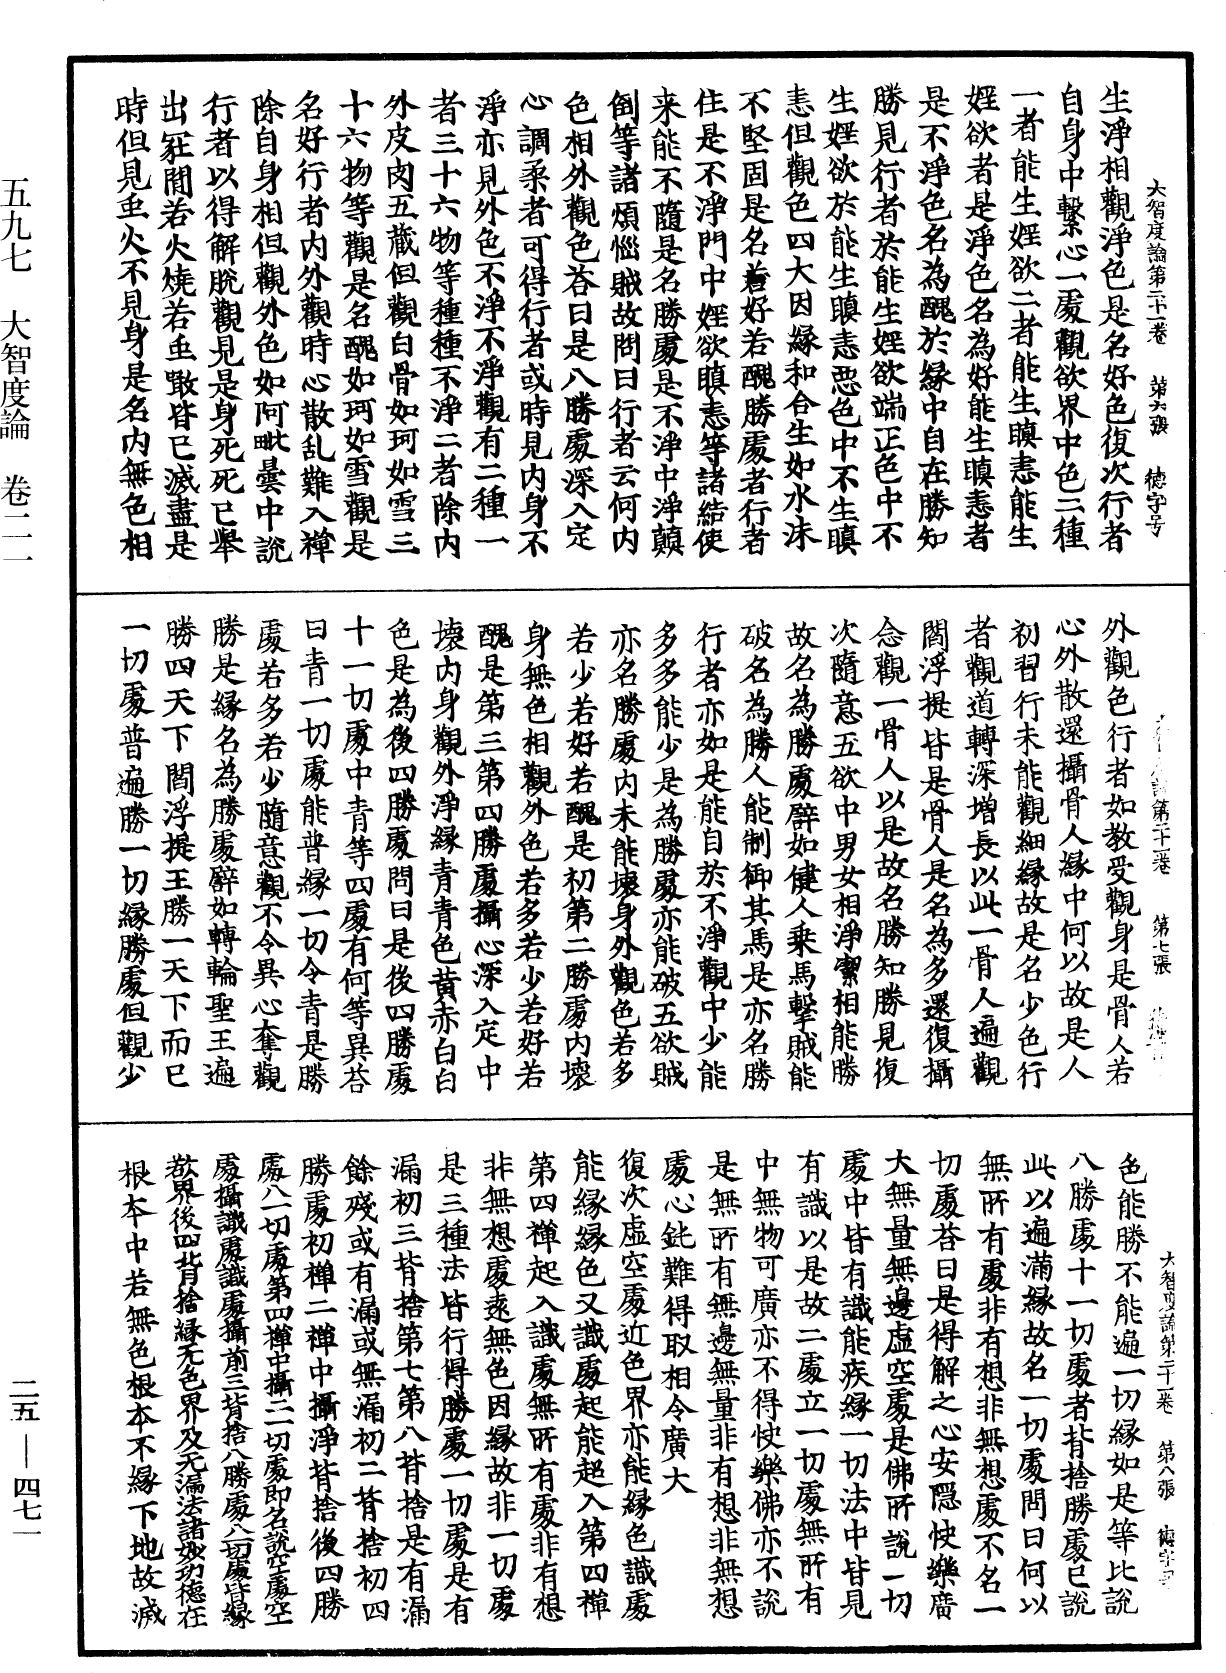 大智度論第二十一卷 第六張 德字号
生淨相觀淨色是名好色復次行者
自身中繫心一處觀欲界中色二種
一者能生婬欲二者能生瞋恚能生
婬欲者是淨色名為好能生瞋恚者
是不淨色名為醜於緣中自在勝知
勝見行者於能生婬欲端正色中不
生婬欲於能生瞋恚惡色中不生瞋
恚但觀色四大因緣和合生如水沫
不堅固是名若好若醜勝處者行者
住是不淨門中婬欲瞋恚等諸結使
来能不隨是名勝處是不淨中淨顛
倒等諸煩惱賊故問曰行者云何内
色相外觀色荅曰是八勝處深入定
心調柔者可得行者或時見内身不
淨亦見外色不淨不淨觀有二種一
者三十六物等種種不淨二者除内
外皮肉五藏但觀白骨如珂如雪三
十六物等觀是名醜如珂如雪觀是
名好行者内外觀時心散乱難入禪
除自身相但觀外色如阿毗曇中說
行者以得解脫觀見是身死死已舉
出冡間若火燒若虫噉皆已滅盡是
時但見虫火不見身是名内無色相
外觀色行者如教受觀身是骨人若
心外散還攝骨人緣中何以故是人
初習行未能觀細緣故是名少色行
者觀道轉深增長以此一骨人遍觀
閻浮提皆是骨人是名為多還復攝
念觀一骨人以是故名勝知勝見復
次隨意五欲中男女相淨潔相能勝
故名為勝處譬如健人乘馬擊賊能
破名為勝人能制御其馬是亦名勝
行者亦如是能自於不淨觀中少能
多多能少是為勝處亦能破五欲賊
亦名勝處内未能壞身外觀色若多
若少若好若醜是初第二勝處内壞
身無色相觀外色若多若少若好若
醜是第三第四勝處攝心深入定中
壞内身觀外淨緣青青色黃赤白白
色是為後四勝處問曰是後四勝處
十一切處中青等四處有何等異荅
曰青一切處能普緣一切令青是勝
處若多若少隨意觀不令異心奪觀
勝是緣名為勝處譬如轉輪聖王遍
勝四天下閻浮提王勝一天下而已
一切處普遍勝一切緣勝處但觀少
第二十一卷 第七張
大智度論第二十一卷 第八張 德字号
色能勝不能遍一切緣如是等比說
八勝處十一切處者背捨勝處已說
此以遍滿緣故名一切處問曰何以
無所有處非有想非無想處不名一
切處荅曰是得解之心安隱快樂廣
大無量無邊虛空處是佛所說一切
處中皆有識能疾緣一切法中皆見
有識以是故二處立一切處無所有
中無物可廣亦不得快樂佛亦不說
是無所有無邊無量非有想非無想
處心鈍難得取相令廣大
復次虛空處近色界亦能緣色識處
能緣緣色又識處起能超入第四禪
第四禪起入識處無所有處非有想
非無想處遠無色因緣故非一切處
是三種法皆行得勝處一切處是有
漏初三背捨第七第八背捨是有漏
餘殘或有漏或無漏初二背捨初四
勝處初禪二禪中攝淨背捨後四勝
處八一切處第四禪中攝二一切處即名說空處空
處攝識處識處攝前三背捨八勝處八一切處皆緣
欲界後四背捨緣无色界及无漏法諸妙功德在
根本中若無色根本不緣下地故滅
五九七 大智度論 卷二一
二五 — 四七一